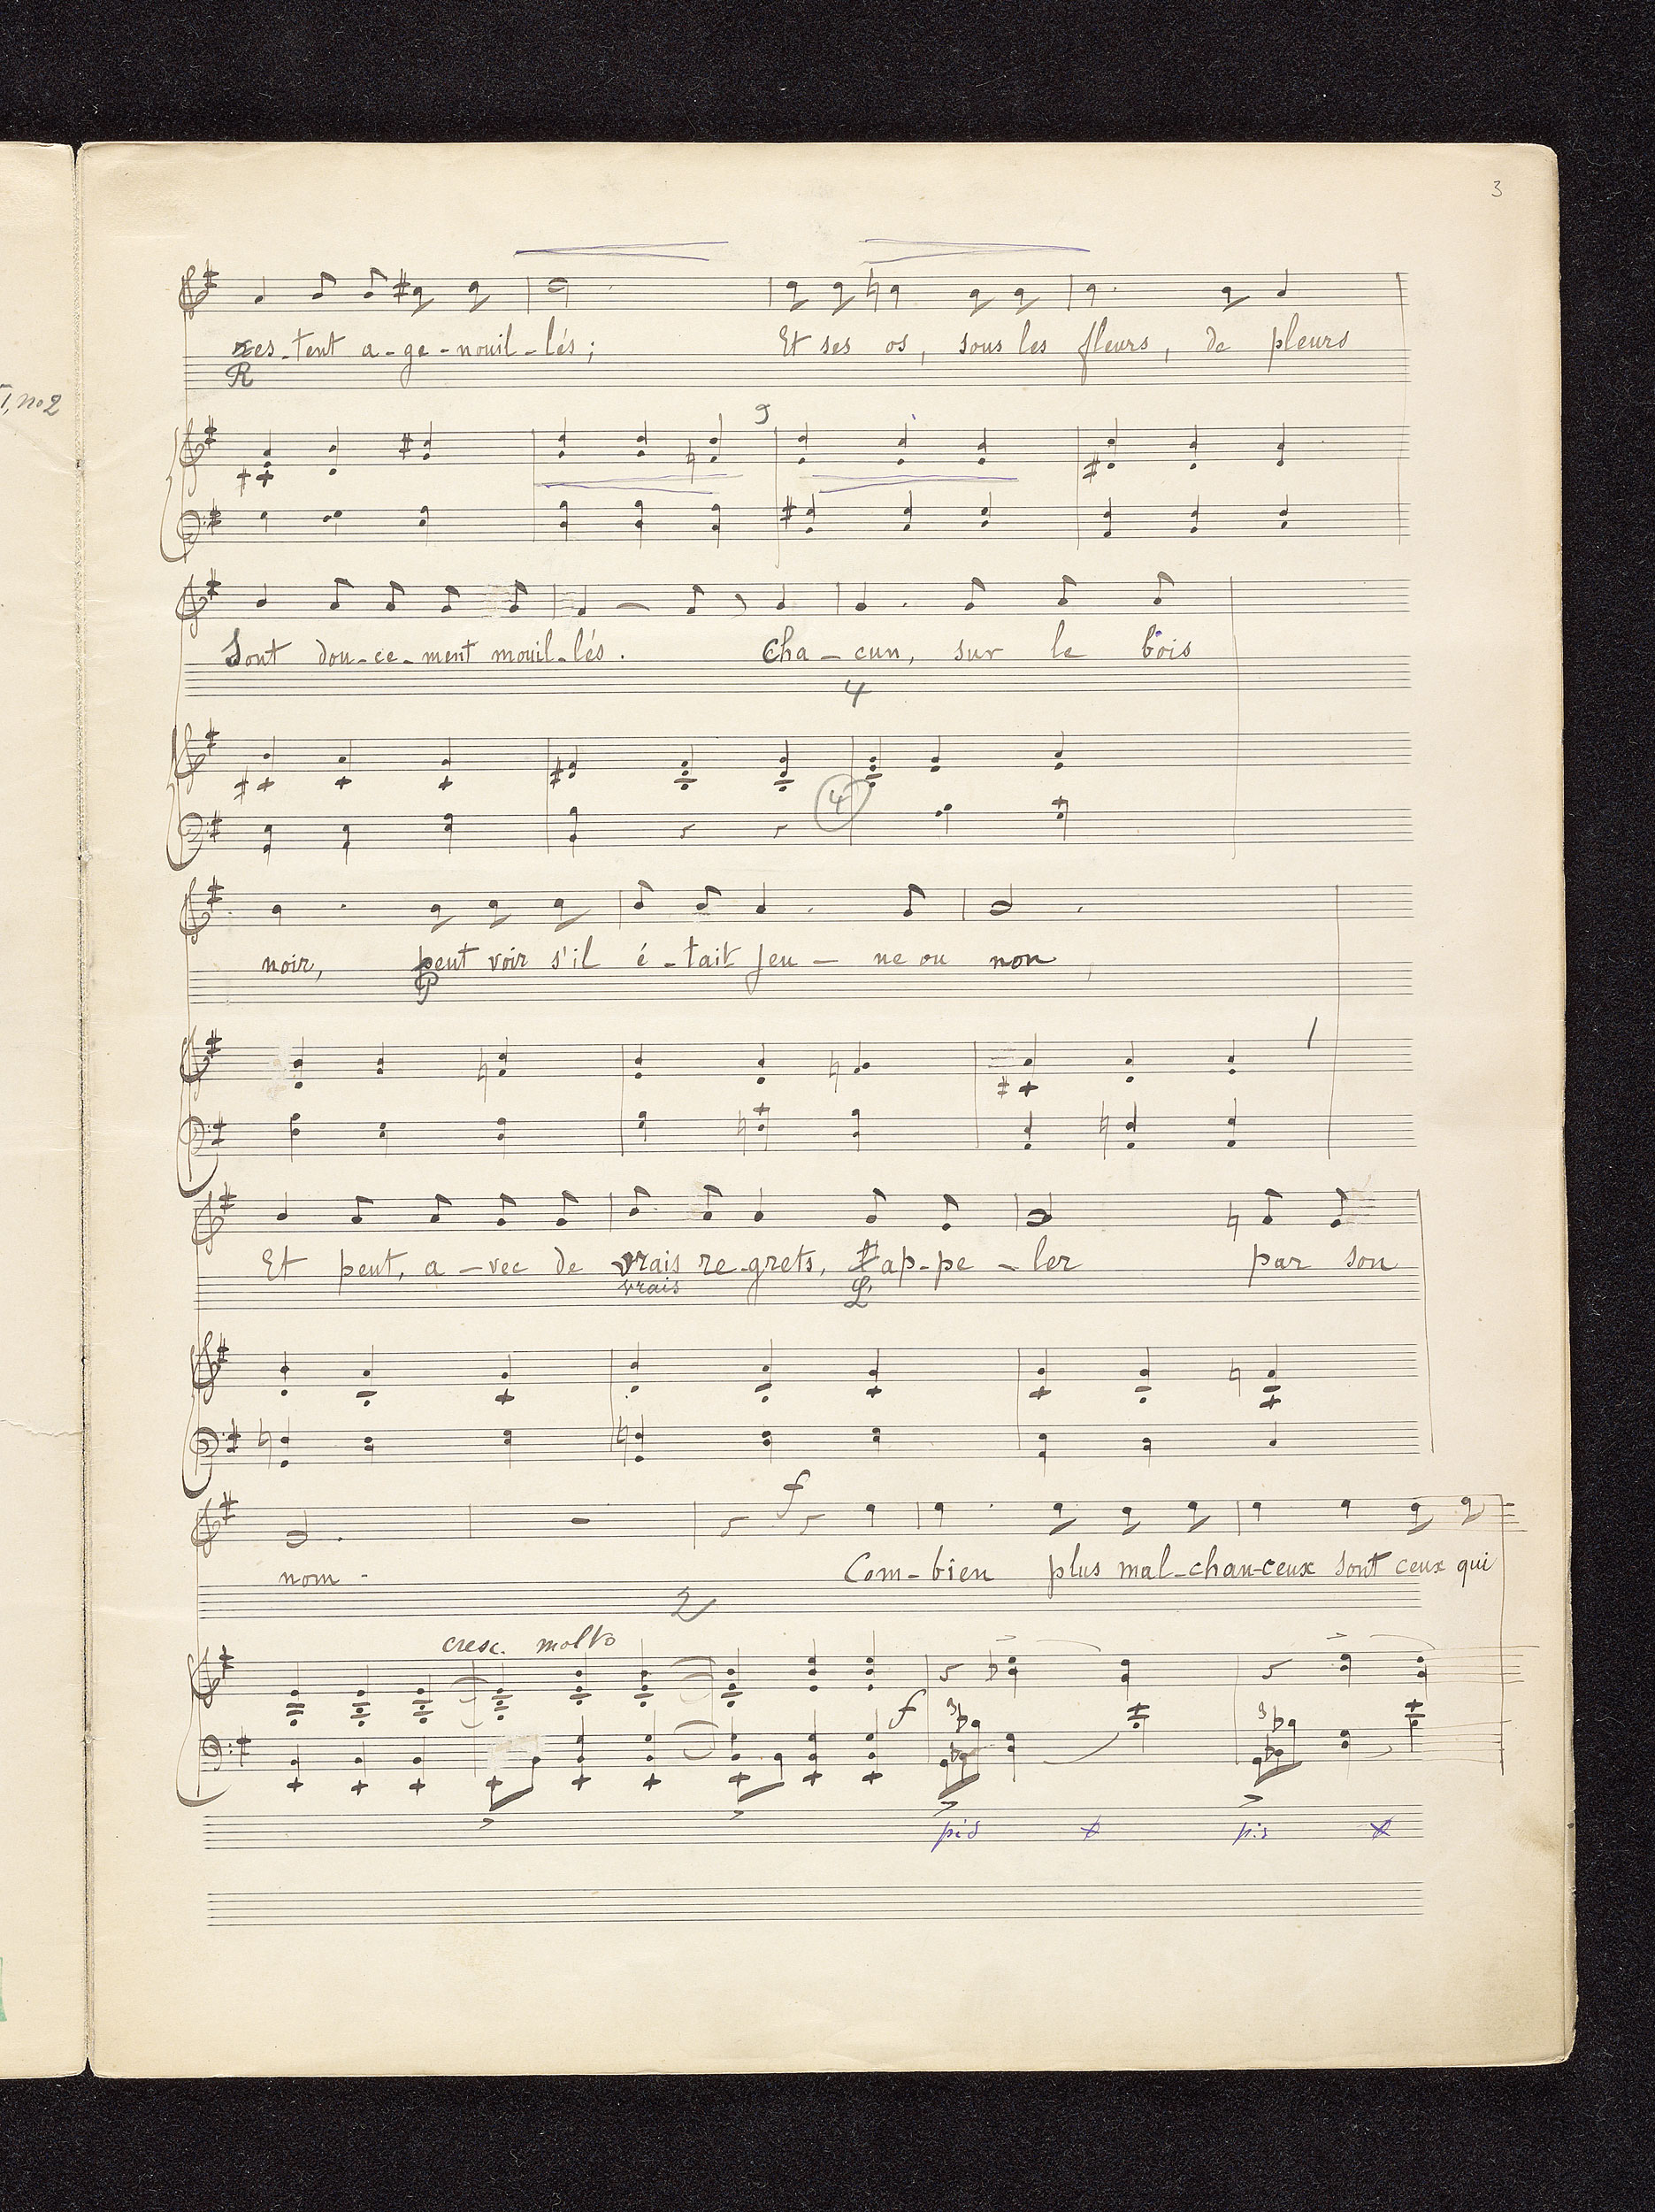 3
I, no 2
res-tent a-ge-nouil-lés; Et ses os, sous les fleurs, de pleurs
R
9
Sont dou-ce-ment mouil-lés. Cha-cun, sur le bois
4
4
noir, peut voir s'il é-tait jeu-ne ou non,
P
Et peut, a-vec de vrais re-grets, l'ap-pe-ler par son
vrais L'
f
nom. Com-bien plus mal-chan-ceux sont ceux qui
2
cresc. molto
f
3 3
ped ped